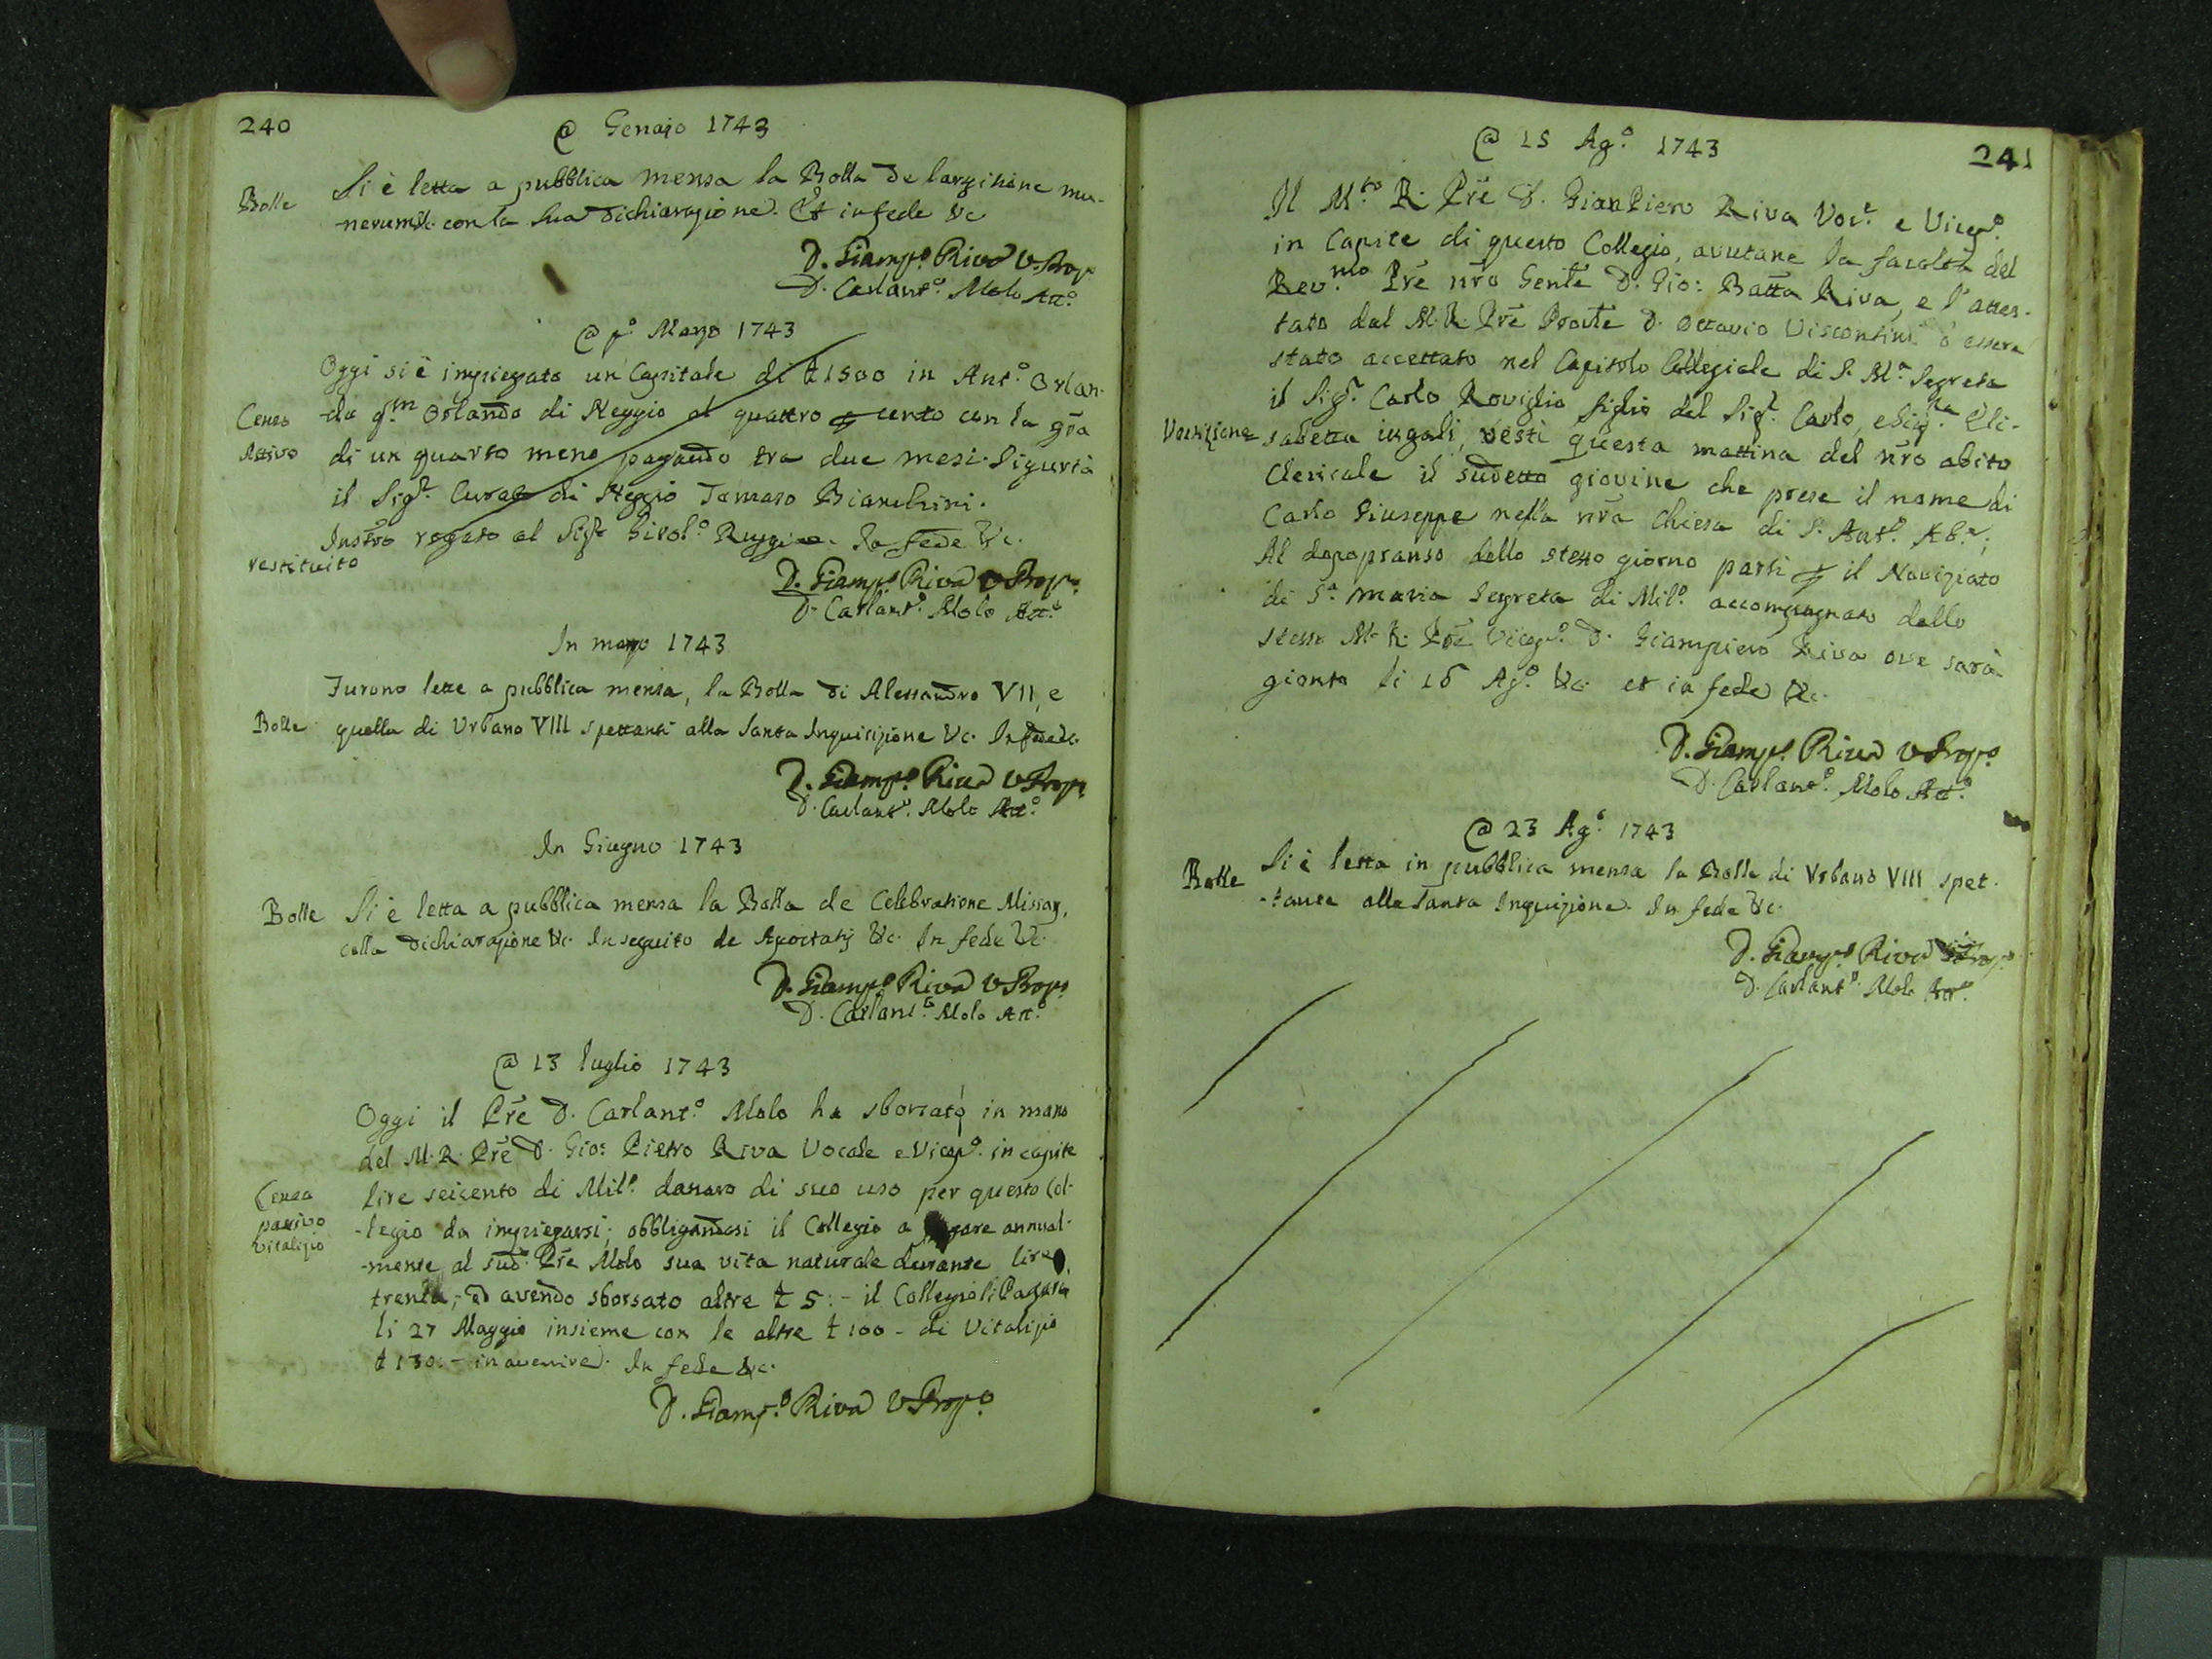 240
@ Genajo 1743
Bolle
Si è letta a pubblica mensa la Bolla de largitione mu-
-nerum &c. con la sua dichiarazione. Et in fede &c
D. Giamp.º Riva V. Prop.º
D. Carlant.º Molo Att.º
@ p.º Marzo 1743
Oggi si è impiegato un Capitale di £ 1500 in Ant.º Orlan-
Censo
Attivo
-do q.m Orlando di Neggio al quattro per cento con la gr̃a
di un quarto meno pagando tra due mesi. Sigurtà
il Sig.r Curato di Neggio Tomaso Bianchini.
Instr̃o rogato al Sig.r Girol.º Ruggia. In fede &c.
restituito
D. Giamp.º Riva V Prop.º
D. Carlant.º Molo Att.º
In marzo 1743
Furono lette a pubblica mensa, la Bolla di Alessandro VII, e
Bolle
quella di Urbano VIII spettanti alla Santa Inquisizione &c. In fede &c.
D. Giamp.º Riva V Prop.º
D. Carlant.º Molo Att.º
In Giugno 1743
Bolle
Si è letta a pubblica mensa la Bolla de Celebratione Missar,
colla dichiarazione &c. In seguito de Apostatis &c. In fede &c.
D. Giamp.º Riva V Prop.º
D. Carlant.º Molo Att.º
@ 13 luglio 1743
Oggi il Pr̃e D. Carlant.º Molo ha sborsato in mano
del M. R. Pr̃e D. Gio: Pietro Riva Vocale e Vicep.º in capite
Censo
passivo
vitalizio
lire seicento di Mil.º danaro di suo uso per questo Col-
-legio da impiegarsi; obbligandosi il Collegio a pagare annual-
-mente al sud.º Pr̃e Molo sua vita naturale durante lire
trenta, ed avendo sborsato altre £ 5:- il Collegio li Pagarà
li 27 Maggio insieme con le altre £ 100 - di Vitalizio
£ 130:- in avenire. In fede &c.
D. Giamp.º Riva V Prop.º
241
@ 15 Ag.º 1743
Il M.to R. Pr̃e D. GianPiero Riva Voc.e e Vicep.º
in Capite di questo Collegio, avutane la facoltà del
Rev.mo Pr̃e nr̃o Gen̄te D. Gio: Batta Riva, e l'attes-
tato dal M. R. Pr̃e Pro͠te D. Ottavio Viscontini d'essere
stato accettato nel Capitolo Collegiale di S. M.a Segreta
il Sig.r Carlo Roviglio figlio del Sig.r Carlo, e Sig.ra Eli-
Vestizione
sabetta iugali, vestì questa mattina del nr̃o abito
Clericale il sudetto giovine che prese il nome di
Carlo Giuseppe nella nr̃a Chiesa di S. Ant.º Ab.e;
Al dopopranso dello stesso giorno partì per il Noviziato
di S.a Maria Segreta di Mil.º accompagnato dallo
stesso M. R. Pr̃e Vicep.º D. Giampiero Riva ove sarà
gionto li 16 Ag.º &c. et in fede &c.
D. Giamp.º Riva V Prop.º
D. Carlant.º Molo Att.º
@ 23 Ag.º 1743
Bolle
Si è letta in pubblica mensa la Bolla di Urbano VIII spet-
-tante alla Santa Inquizione. In fede &c.
D. Giamp.º Riva V Prop.º
D. Carlant.º Molo Att.º